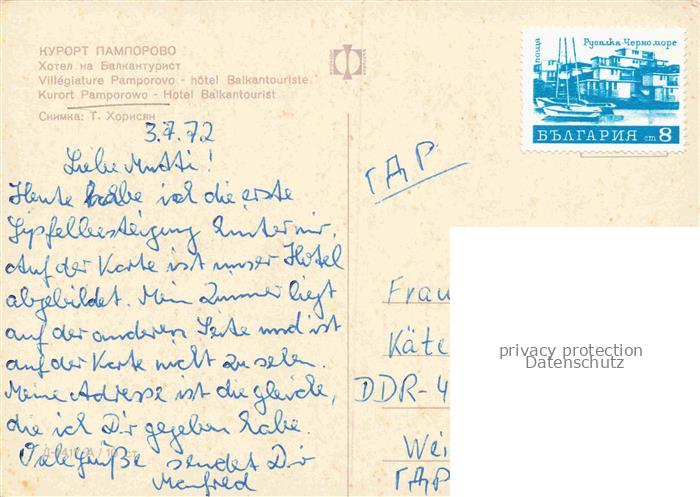 КУРОРТ ПАМПОРОВО
Хотел на Балкантурист
Villégiature Pamporovo - hôtel Balkantouriste.
Kurort Pamporowo - Hotel Balkantourist
Снимка: Т. Хорисян
поща
Русалка Черно море
БЪЛГАРИЯ ст 8
3.7.72
ГДР
Liebe Mutti!
Heute habe ich die erste
Gipfelbesteigung hinter mir.
Auf der Karte ist unser Hotel
abgebildet. Mein Zimmer liegt
auf der anderen Seite und ist
auf der Karte nicht zu sehen.
Meine Adresse ist die gleiche,
die ich Dir gegeben habe.
Viele Grüße sendet Dir
Manfred
Frau
Käte
DDR-4
Wei
ГДР
privacy protection
Datenschutz